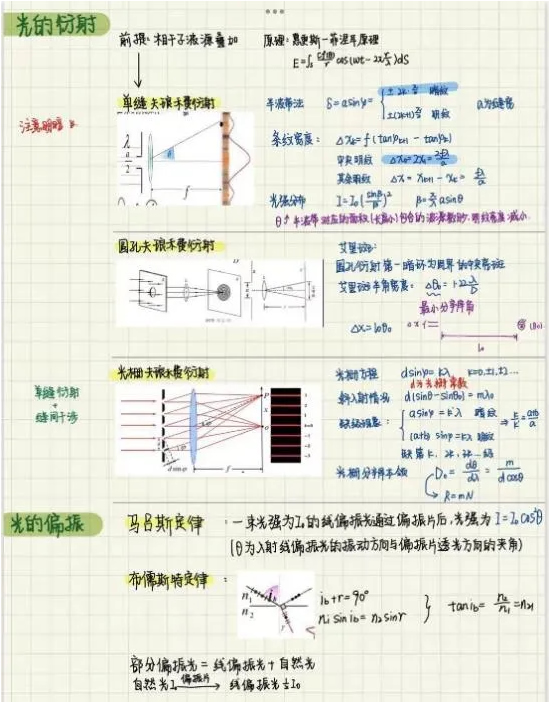 光的衍射
前提:相干子波源叠加
原理:惠更斯-菲涅耳原理
单缝夫琅禾费衍射
半波带法 δ=asinφ= { ±2k·λ/2 暗纹
±(2k+1)λ/2 明纹
a为缝宽
注意明暗
条纹宽度: Δxk=f(tanφk+1-tanφk)
中央明纹 Δx0=2x1=2fλ/a
其余明纹 Δx=xk+1-xk=fλ/a
光强分布 I=I0(sinβ/β)² β=π/λ asinθ
f
圆孔夫琅禾费衍射
艾里斑:
圆孔衍射第一暗环为周界的中央亮斑
艾里斑半角宽度: Δθ0=1.22λ/D
最小分辨角
Δx=l0θ0
l0
光栅夫琅禾费衍射
单缝衍射
+
缝间干涉
光栅方程 dsinφ=kλ, k=0,±1,±2…
d为光栅常数
斜入射情况 d(sinθ-sinθ0)=mλ0
缺级现象: { asinφ=k'λ 暗纹
(a+b)sinφ=kλ
光栅分辨本领 Dθ=dθ/dλ=m/dcosθ
R=mN
P
x
o
d sinφ
f
光的偏振
马吕斯定律:一束光强为I0的线偏振光通过偏振片后,光强为I=I0cos²θ
(θ为入射线偏振光的振动方向与偏振片透光方向的夹角)
布儒斯特定律:
n1
n2
ib
r
ib+r=90°
n1sinib=n2sinr
} tanib=n2/n1=n21
部分偏振光=线偏振光+自然光
自然光I0 偏振片→ 线偏振光½I0